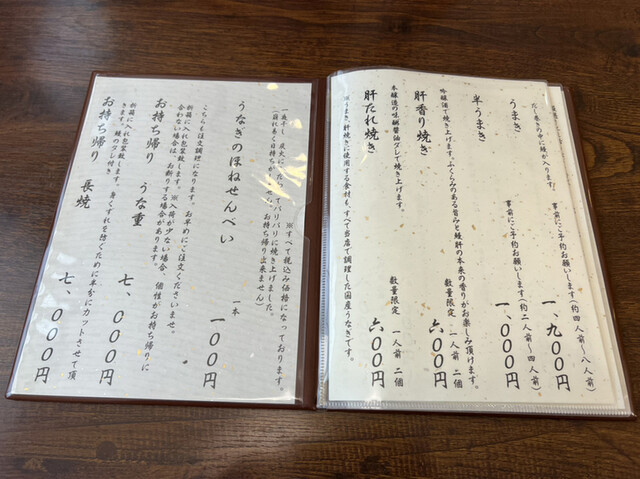 うまき
事前にご予約お願いします(約四人前～八人前)
一、九〇〇円
だし巻きの中に鰻が入ります!
半うまき
事前にご予約お願いします(約二人前～四人前)
一、〇〇〇円
肝香り焼き
数量限定 一人前 二個
六〇〇円
吟醸酒で焼き上げます。ふくらみのある旨みと鰻肝の本来の香りがお楽しみ頂けます。
肝たれ焼き
数量限定 一人前 二個
六〇〇円
本醸造の味醂醤油ダレで焼き上げます。
※うまき、肝焼きに使用する食材も、すべて当店で調理した国産うなぎです。
※すべて税込み価格になっております。
うなぎのほねせんべい
一本
一〇〇円
一夜干し、炭火にあたってパリパリに焼き上げました。
お持ち帰り出来ません)
こちらも注文調理になります。お早めにご注文くださいませ。
お持ち帰り うな重
七、〇〇〇円
折箱に入れ包装致します。※入荷が少ない場合、個性がお持ち帰りに
合わない場合は、お断りする場合があります。
お持ち帰り 長焼
七、〇〇〇円
折箱に入れ包装致します。身くずれを防ぐために半分にカットさせて頂
きます。鰻のタレ付き